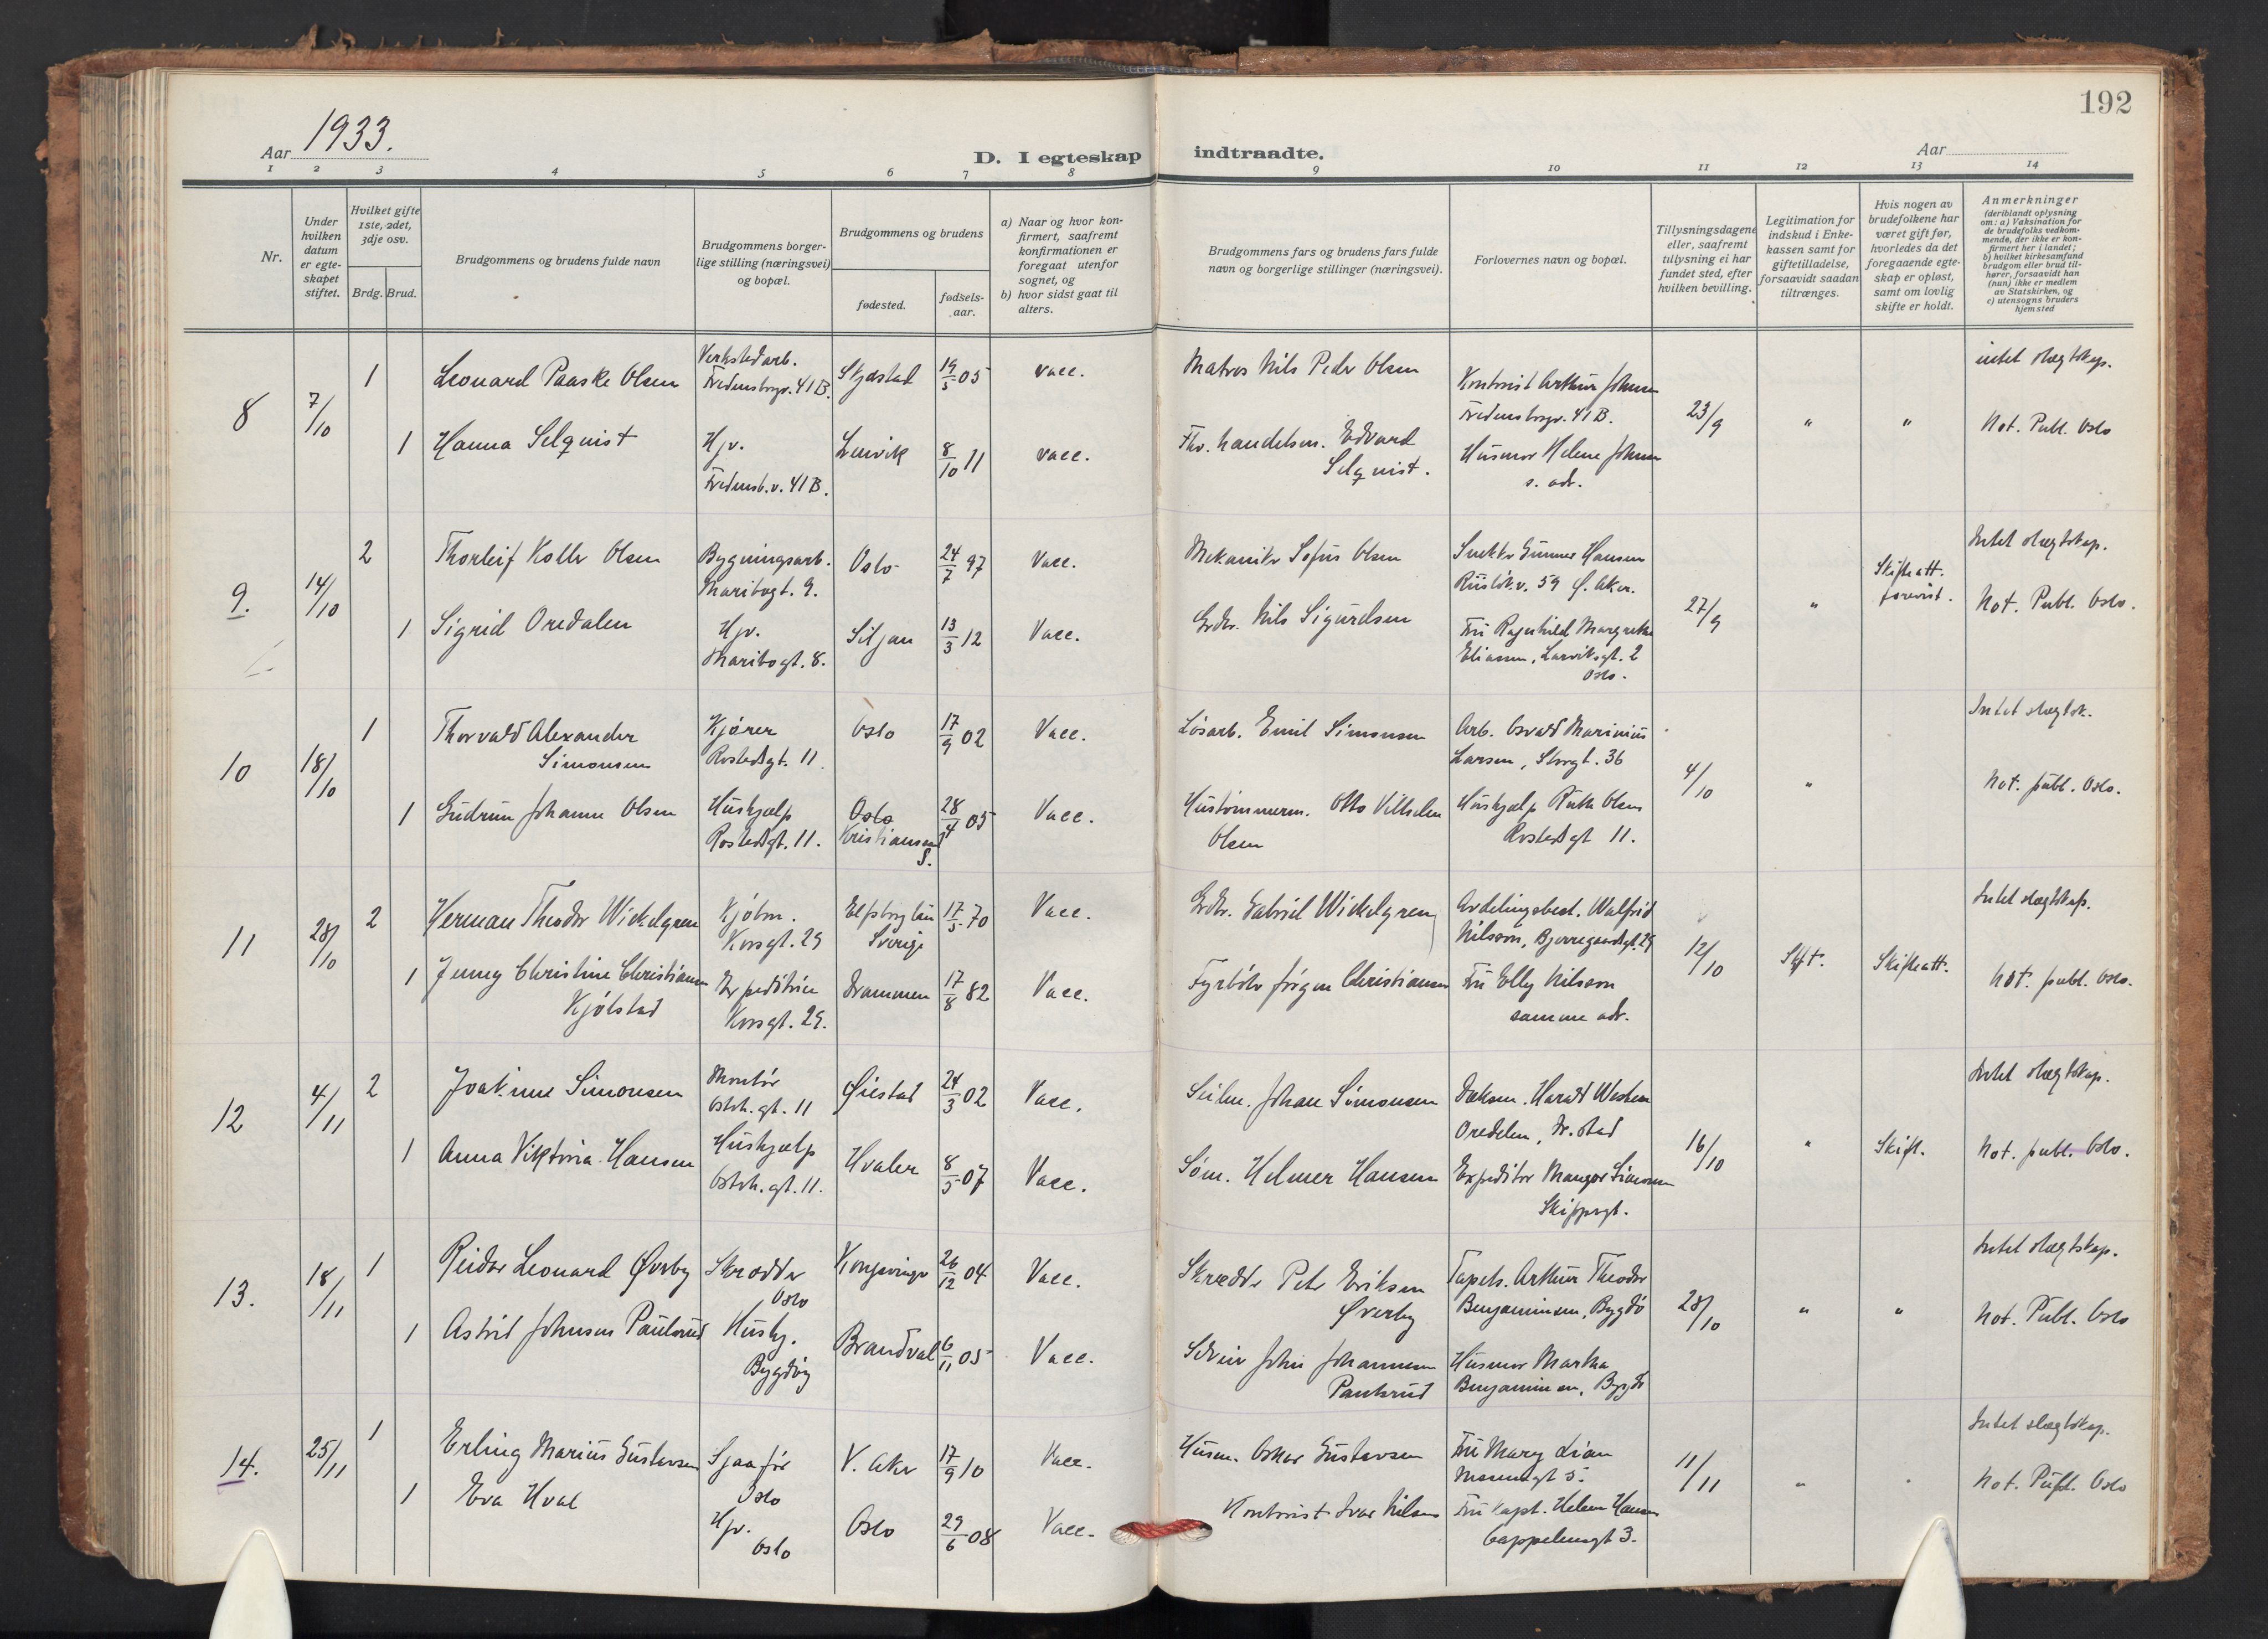 192
Aar 1933.
D. I egteskap indtraadte.
Aar
1 2 3 4 5 6 7 8 9 10 11 12 13 14
Nr.
Under hvilken datum er egteskapet stiftet.
Hvilket gifte 1ste, 2det, 3dje osv.
Brdg. Brud.
Brudgommens og brudens fulde navn
Brudgommens borgerlige stilling (næringsvei) og bopæl.
Brudgommens og brudens
fødested.
fødselsaar.
a) Naar og hvor konfirmert, saafremt konfirmationen er foregaat utenfor sognet, og
b) hvor sidst gaat til alters.
Brudgommens fars og brudens fars fulde navn og borgerlige stillinger (næringsvei).
Forlovernes navn og bopæl.
Tillysningsdagene eller, saafremt tillysning ei har fundet sted, efter hvilken bevilling.
Legitimation for indskud i Enkekassen samt for giftetilladelse, forsaavidt saadan tiltrænges.
Hvis nogen av brudefolkene har været gift før, hvorledes da det foregaaende egteskap er opløst, samt om lovlig skifte er holdt.
Anmerkninger (deriblandt oplysning om: a) Vaksination for de brudefolks vedkommende, der ikke er konfirmert her i landet; b) hvilket kirkesamfund brudgom eller brud tilhører, forsaavidt han (hun) ikke er medlem av Statskirken, og c) utensogns bruders hjemsted
8 7/10
1 Leonard Paaske Olsen Verkstedarb. Fredensborgv. 41 B. 19/5 05 vacc. Matros Nils Peder Olsen
1 Hanna Selquist Hjv. Fredensb.v. 41 B. 8/10 11 vacc. Fhv. handelsm. Edvard Selquist.
Kontorist Arthur Johnsen Fredensborgv. 41 B.
Husmor Helene Johnsen s. adr.
23/9 " " intet slægtskap.
Not. Publ. Oslo
9. 14/10
2 Thorleif Koller Olsen Bygningsarb. Maribogt. 9. Oslo 24/7 97 Vacc. Mekaniker Sofus Olsen
1 Sigrid Oredalen Hjv. Maribogt. 8. Siljan 13/3 12 Vacc. Grdbr. Nils Sigurdsen
Snekker Gunnar Hansen Riisløkv. 59 Ø. Aker.
Fru Ragnhild Margrethe Eliassen, Larviksgt. 2 Oslo.
27/9 " Skifteatt. forevist. Intet slægtskap.
Not. Publ. Oslo.
10 18/10
1 Thorvald Alexander Simonsen Kjører Rostedsgt. 11. Oslo 17/9 02 Vacc. Løsarb. Emil Simonsen
1 Gudrun Johanne Olsen Hushjælp Rostedsgt. 11. Oslo Kristiansand S. 28/4 05 Vacc. Hustømmerm. Otto Vilhelm Olsen
Arb. Osvald Marinius Larsen, Storgt. 36
Hushjælp Ruth Olsen Rostedsgt 11.
4/10 " Intet slægtsk.
Not. publ. Oslo.
11 28/10
2 Herman Theodor Wickelgren Kjøbm. Korsgt. 29 Elfsborg län Sverige 17/5 70 Vacc. Grdbr. Gabriel Wickelgren
1 Jenny Christine Christiansen Kjølstad Expeditrice Korsgt. 29. Drammen 17/8 82 Vacc. Fyrbøter Jørgen Christiansen
Avdelingsbest. Walfrid Nilsson, Bjerregaardsgt. 29
Fru Elly Nilsson samme adr.
12/10 Skft. Skifteatt. Intet slægtskap.
Not. publ. Oslo.
12 4/11
2 Joakime Simonsen Montør Osterh. gt. 11 Øiestad 24/3 02 Vacc. Seilm. Johan Simonsen
1 Anna Viktoria Hansen Hushjælp Osterh. gt. 11. Hvaler 8/5 07 Vacc. Søm. Helmer Hansen
Harald
Expeditør Mangor Simonsen Skippergt.
16/10 " Skift. Intet slægtskap.
Not. publ. Oslo.
13. 18/11
1 Reidar Leonard Øverby Skrædder Oslo Kongsvinger 26/12 04 Vacc. Skrædder Peter Eriksen Øverby
1 Astrid Johnsen Paulsrud Hushj. Bygdøy Brandval 6/11 05 Vacc. John Johannesen Paulsrud
Tapets. Arthur Theodor Benjaminsen, Bygdø
Husmor Martha Benjaminsen, Bygdø
28/10 " " Intet slægtskap.
Not. Publ. Oslo
14. 25/11
1 Erling Marius Gustavsen Sjaafør Oslo V. Aker 17/9 10 Vacc. Husm. Oskar Gustavsen
1 Eva Hval Hjv. Oslo Oslo 29/6 08 Vacc. Kontorist Ivar Nilsen
Fru Mary Lian
Fru Kapt. Helen Hansen Cappelensgt 3.
11/11 " Intet slægtskap.
Not. Publ. Oslo